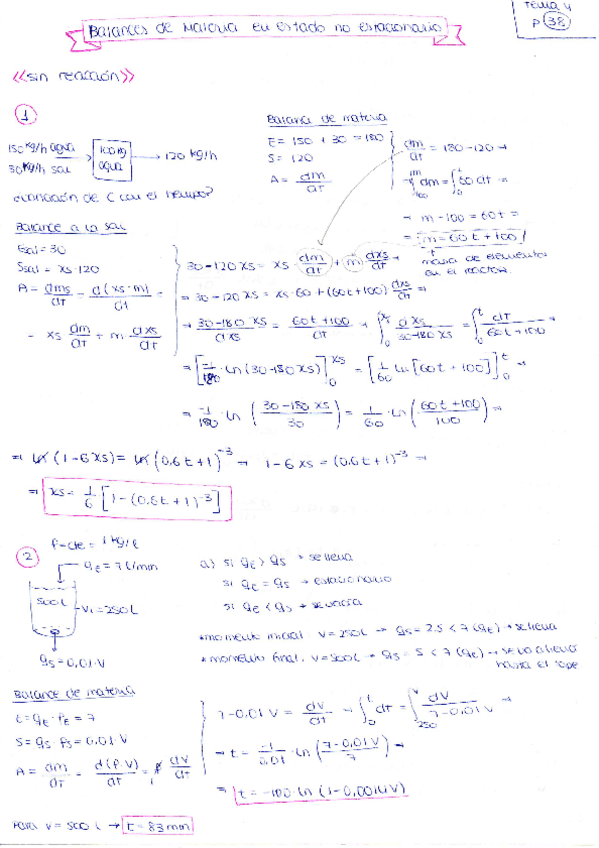 Tema 4
P 38
Balances de materia en estado no estacionario
<<sin reacción>>
1
150 kg/h agua
30 kg/h sal
100 kg
agua
→ 120 kg/h
¿variación de C con el tiempo?
Balance de materia
E = 150 + 30 = 180
S = 120
A = dm/dt
dm/dt = 180 - 120 →
∫₁₀₀ᵐ dm = ∫₀ᵗ 60 dt →
→ m - 100 = 60t =
= m = 60t + 100
masa de elementos
en el reactor
Balance a la sal
Esal = 30
Ssal = xs·120
A = dms/dt = d(xs·m)/dt =
= xs dm/dt + m dxs/dt
30 - 120xs = xs · dm/dt + m dxs/dt →
⇒ 30 - 120xs = xs·60 + (60t + 100) dxs/dt ⇒
→ 30 - 180xs/dxs = 60t + 100/dt → ∫₀ˣˢ dxs/30 - 180xs = ∫₀ᵗ dt/60t + 100
⇒ [-1/180 · Ln(30 - 180xs)]₀ˣˢ = [1/60 Ln[60t + 100]]₀ᵗ →
⇒ -1/180 Ln (30 - 180xs/30) = 1/60 · Ln (60t + 100/100) ⇒
⇒ Ln (1 - 6xs) = Ln (0,6t + 1)⁻³ → 1 - 6xs = (0,6t + 1)⁻³ →
⇒ xs = 1/6 [1 - (0,6t + 1)⁻³]
2
ρ = cte = 1 kg/l
qE = 7 l/min
500 L
V₁ = 250 L
qs = 0,01·V
a) si qE > qs → se llena
si qE = qs → estacionario
si qE < qs → se vacía
*momento inicial V = 250 L → qs = 2.5 < 7 (qE) → se llena
*momento final. V = 500 L → qs = 5 < 7 (qE) →
hasta el tope
Balance de materia
E = qE · ρE = 7
S = qs · ρs = 0,01·V
A = dm/dt = d(ρ·V)/dt = ρ dV/dt
7 - 0,01V = dV/dt → ∫₀ᵗ dt = ∫₂₅₀ⱽ dV/7 - 0,01V →
→ t = -1/0,01 · Ln (7 - 0,01V/7) →
⇒ t = -100 Ln (1 - 0,0014V)
Para V = 500 L → t = 83 min